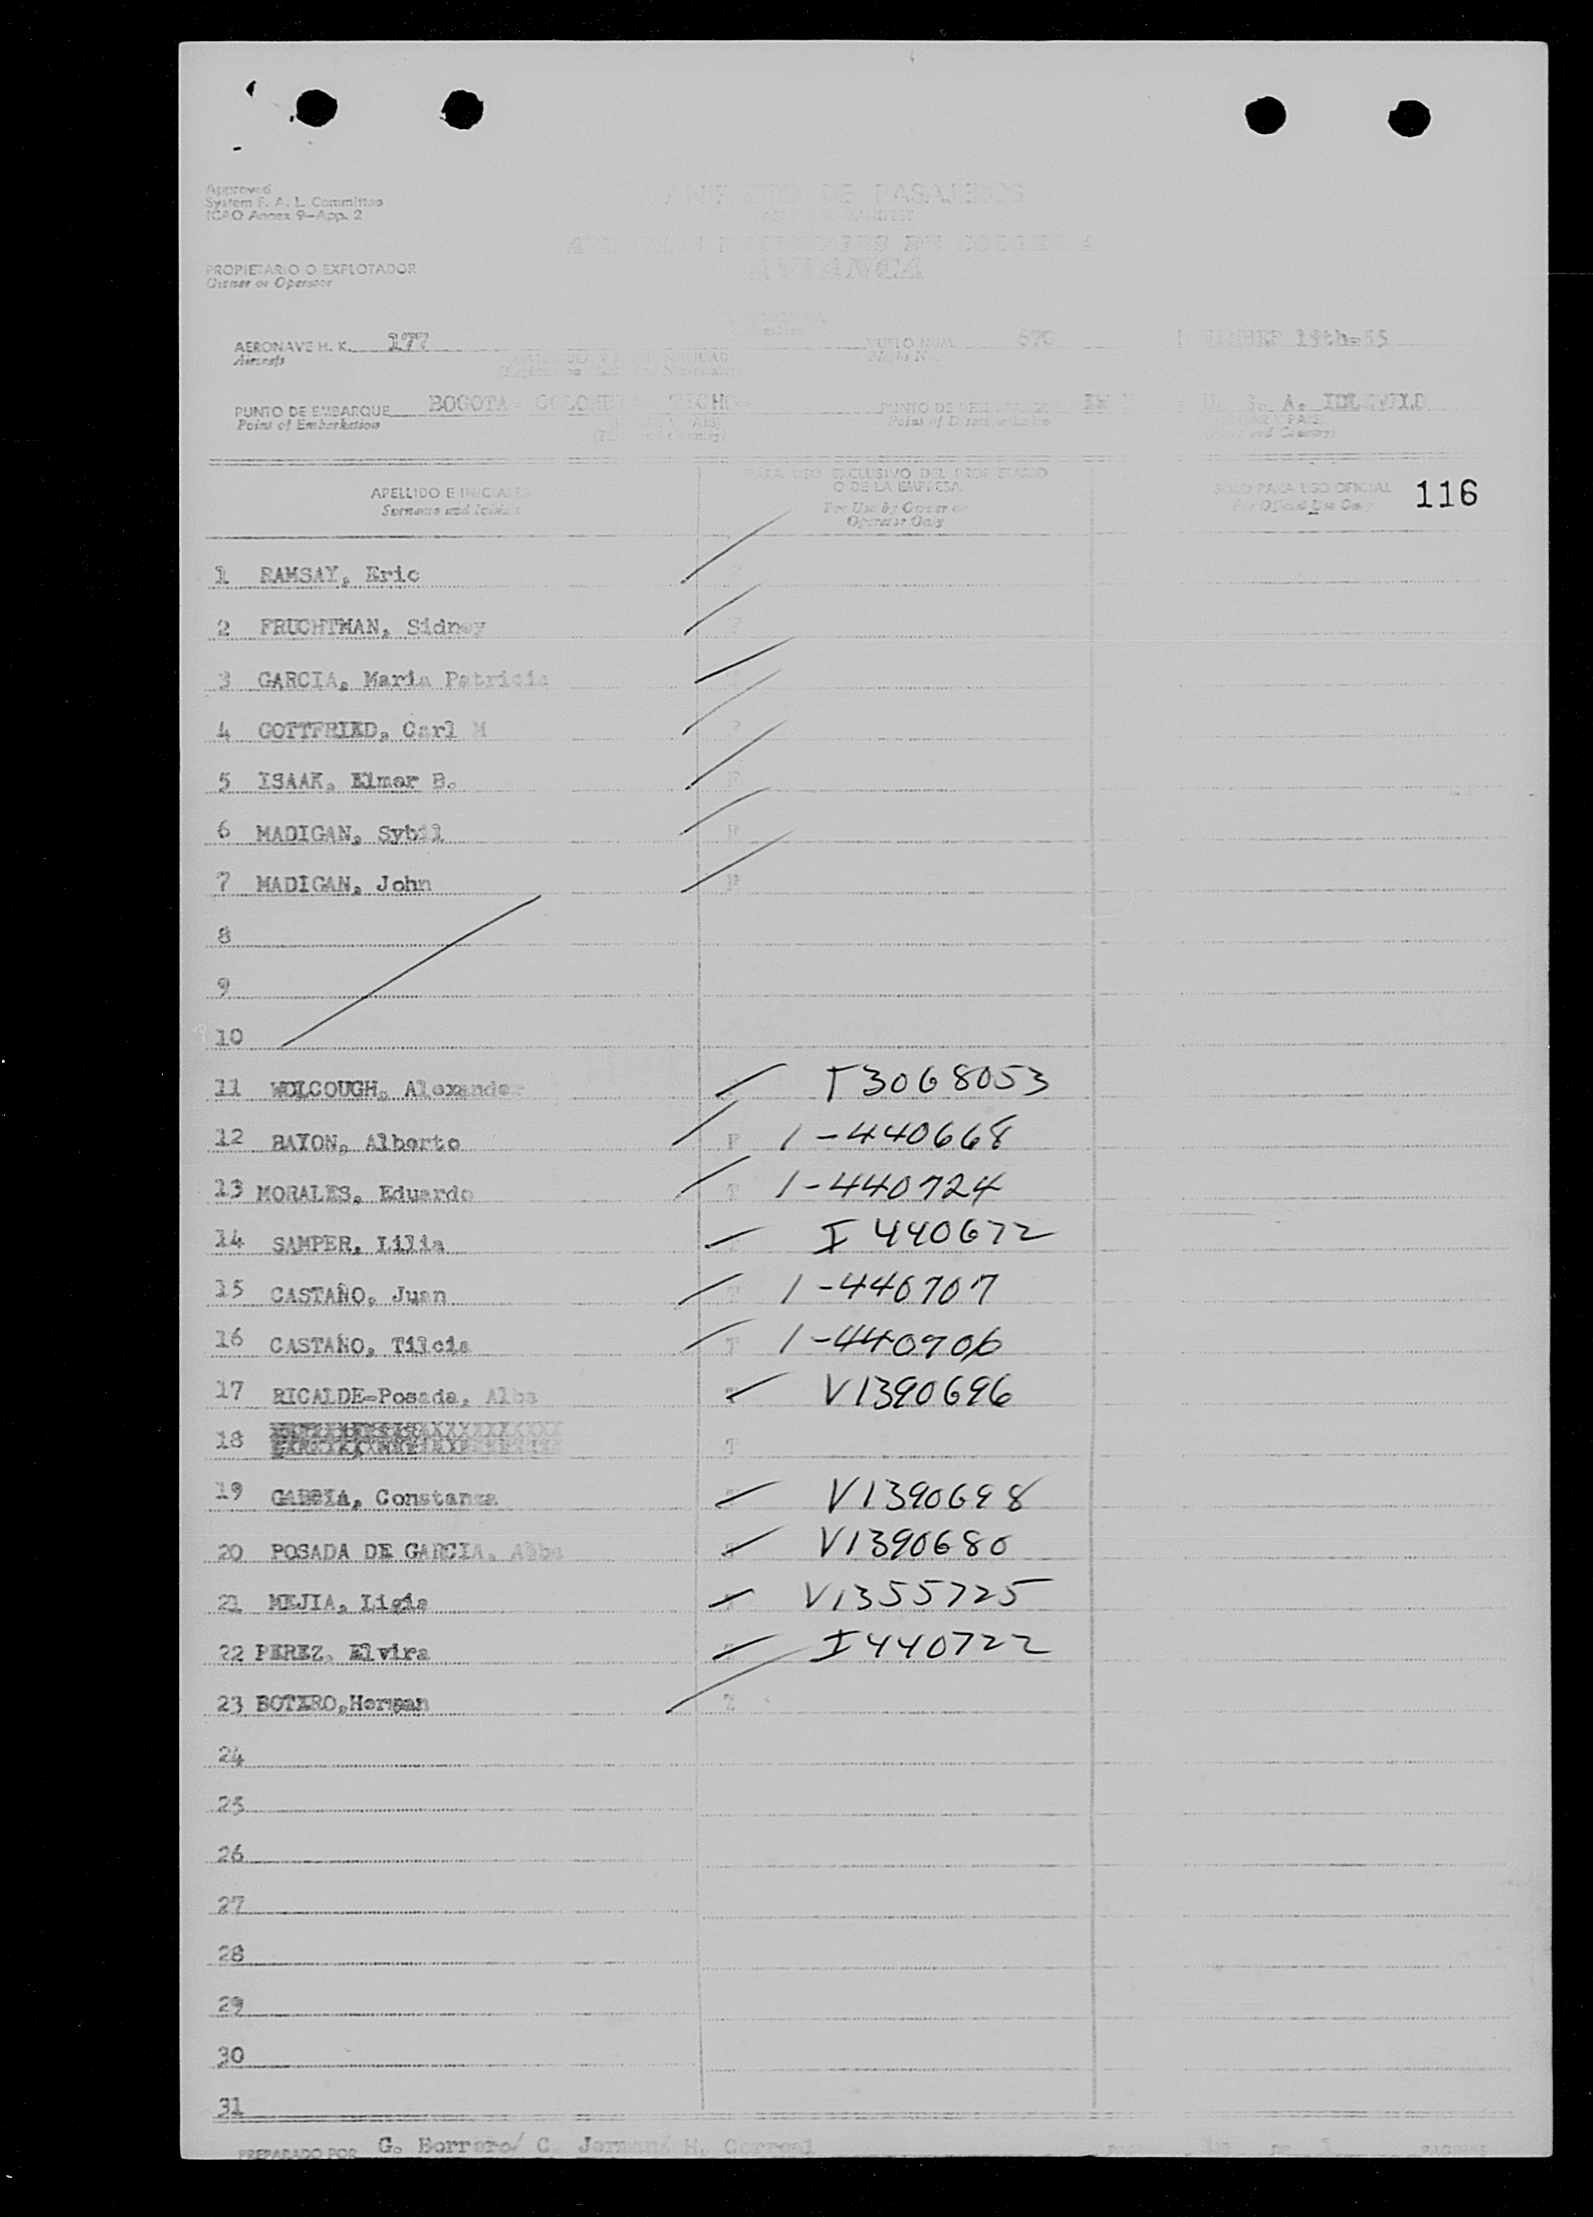 Approved
System F. A. L. Committee
ICAO Annex 9-App. 2
DE PASAJEROS
AVIANCA
PROPIETARIO O EXPLOTADOR
Owner or Operator
AERONAVE H. K. 177 VUELO NUM. 670 19th-55
Aircraft
PUNTO DE EMBARQUE BOGOTA- TECHO- PUNTO DE U. S. A. IDLEWILD
Point of Embarkation
APELLIDO E INICIALES
Surname and Initials
PARA USO EXCLUSIVO DEL PROPIETARIO
O DE LA EMPRESA
For Use by Owner or
Operator Only
SOLO PARA USO OFICIAL
For Official Use Only
116
1 RAMSAY, Eric
2 FRUCHTMAN, Sidney
3 GARCIA, Maria Patricia
4 GOTTFRIED, Carl M
5 ISAAK, Elmer B.
6 MADIGAN, Sybil
7 MADIGAN, John
8
9
10
11 WOLCOUGH, Alexander T3068053
12 BAYON, Alberto F 1-440668
13 MORALES, Eduardo T 1-440724
14 SAMPER, Lilia I 440672
15 CASTAÑO, Juan T 1-440707
16 CASTAÑO, Tilcia T 1-440706
17 RICALDE-Posada, Alba V1390696
18 T
19 GARCIA, Constanza V1390698
20 POSADA DE GARCIA, Alba V1390680
21 MEJIA, Ligia V1355725
22 PEREZ, Elvira I440722
23 BOTERO, Herman T
24
25
26
27
28
29
30
31
PREPARADO POR G. Borrero/ C. H. Correal